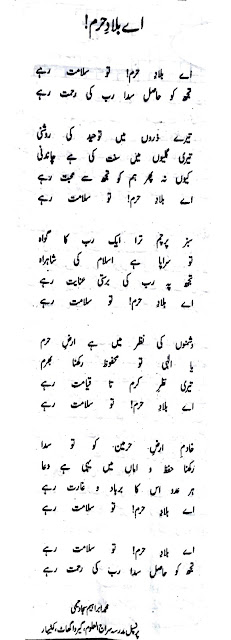 اے بلادِ حرم!
اے بلادِ حرم! تو سلامت رہے
تجھ کو حاصل سدا رب کی رحمت رہے
تیرے ذروں میں توحید کی روشنی
تیری گلیوں میں سنت کی ہے چاندنی
کیوں نہ پھر ہم کو تجھ سے محبت رہے
اے بلادِ حرم! تو سلامت رہے
سبز پرچم ترا ایک رب کا گواہ
تو سراپا ہے اسلام کی شاہراہ
تجھ پہ رب کی برستی عنایت رہے
اے بلادِ حرم! تو سلامت رہے
دشمنوں کی نظر میں ہے ارضِ حرم
یا الٰہی تو محفوظ رکھنا بھرم
تیری نظرِ کرم تا قیامت رہے
اے بلادِ حرم! تو سلامت رہے
خادمِ ارضِ حرمین کو تو سدا
رکھنا حفظ و اماں میں یہی ہے دعا
ہر عدو اس کا برباد و غارت رہے
اے بلادِ حرم! تو سلامت رہے
اے بلادِ حرم! تو سلامت رہے
تجھ کو حاصل سدا رب کی رحمت رہے
محمد ابراہیم سجاد تیمی
پرنسپل مدرسہ سراج العلوم، کٹیہار